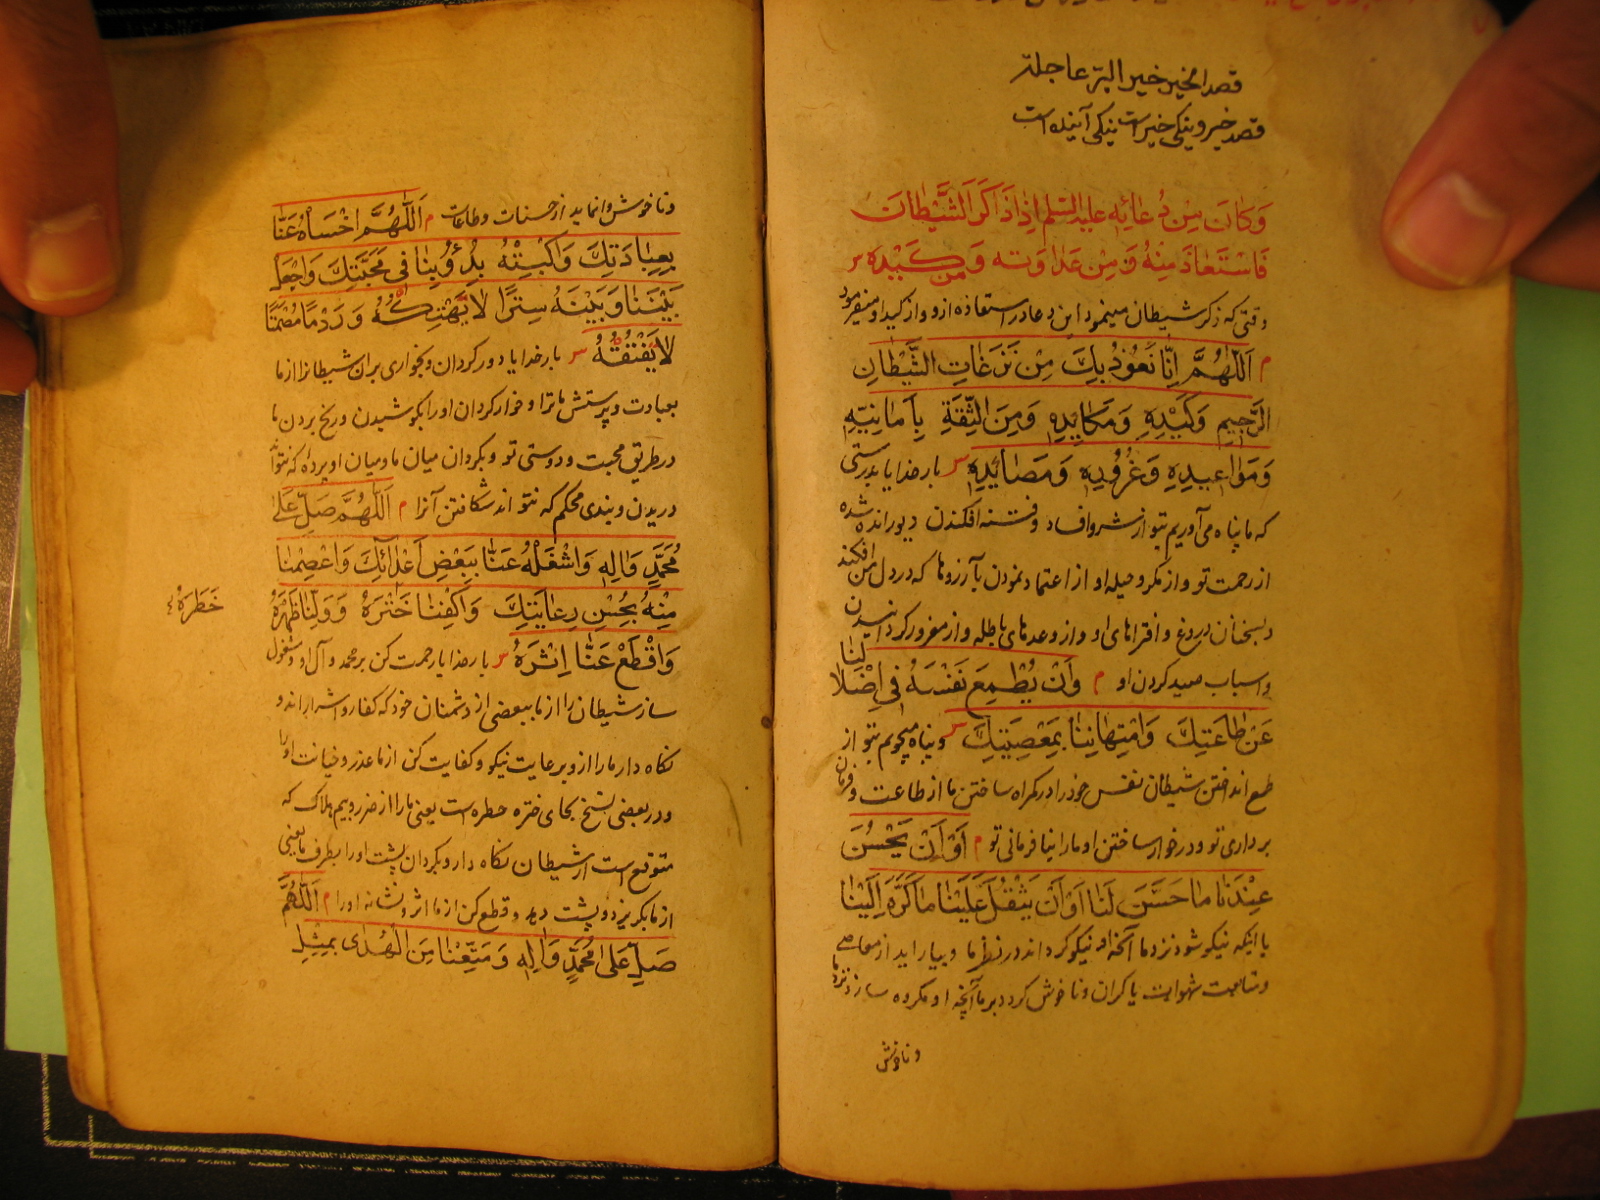 قصد الخیر خیر البرّ عاجلة
قصد خیر و نیکی خیر است نیکی آینده است
وَكَانَ مِنْ دُعَائِهِ عليه السّلم إِذَا ذَكَرَ الشَّيْطَانَ
فَاسْتَعَاذَ مِنْهُ وَمِنْ عَدَاوَتِهِ وَمِنْ كَيْدِهِ س
وقتی که ذکر شیطان مینمود این دعا در استعاذه ازو و از کید او میفرمود
م اَللّٰهُمَّ اِنَّا نَعُوذُ بِكَ مِنْ نَزَغَاتِ الشَّيْطَانِ
الرَّجِيمِ وَكَيْدِهِ وَمَكَايِدِهِ وَمِنَ الثِّقَةِ بِأَمَانِيِّهِ
وَمَوَاعِيدِهِ وَغُرُورِهِ وَمَصَائِدِهِ س بار خدایا بدرستی
که ما پناه می آوریم بتو از شر و افساد و فتنه افکندن دیو رانده شده
از رحمت تو و از مکر و حیله او از اعتماد نمودن بآرزوها که در دل من افکند
و بسخنان دروغ و افتراهای او و از وعدهای باطله و از مغرور کردانیدن
و اسباب صید کردن او م وَأَنْ يُطْمِعَ نَفْسَهُ فِي إِضْلَالِنَا
عَنْ طَاعَتِكَ وَامْتِهَانِنَا بِمَعْصِيَتِكَ س و پناه میجویم بتو از
طمع انداختن شیطان نفس خود را در کمراه ساختن ما از طاعت و فرمان
برداری تو و در خوار ساختن او ما را بنا فرمانی تو م اَوْ اَنْ يَحْسُنَ
عِنْدَنَا مَا حَسَّنَ لَنَا اَوْ اَنْ يَثْقُلَ عَلَيْنَا مَا كَرَّهَ اِلَيْنَا
یا اینکه نیکو شود نزد ما آنچه او نیکو کرداند در نظر ما و بیاراید از معاصی
و متابعت شهوات یا کران و ناخوش کردد بر ما آنچه او مکروه سازد نزد ما
و ناخوش
و ناخوش وانماید از حسنات و طاعات م اَللّٰهُمَّ اخْسَأْهُ عَنَّا
بِعِبَادَتِكَ وَاكْبِتْهُ بِدُؤُوبِنَا فِي مَحَبَّتِكَ وَاجْعَلْ
بَيْنَنَا وَبَيْنَهُ سِتْرًا لَا يَهْتِكُهُ وَرَدْمًا مُصْمَتًا
لَا يَفْتُقُهُ س بار خدایا دور کردان و بخواری بران شیطانرا از ما
بعبادت و پرستش ما ترا و خوار کردان او را بکوشیدن و رنج بردن ما
در طریق محبت و دوستی تو و بکردان میان ما و میان او پرده که نتواند
دریدن و بندی محکم که نتواند شکافتن آنرا م اَللّٰهُمَّ صَلِّ عَلَى
مُحَمَّدٍ وَآلِهِ وَاشْغَلْهُ عَنَّا بِبَعْضِ اَعْدَائِكَ وَاعْصِمْنَا
مِنْهُ بِحُسْنِ رِعَايَتِكَ وَاكْفِنَا خَتْرَهُ وَوَلِّنَا ظَهْرَهُ
خَطَرَهُ
وَاقْطَعْ عَنَّا اِثْرَهُ س بار خدایا رحمت کن بر محمد و آل او و مشغول
ساز شیطان را از ما ببعضی از دشمنان خود که کفار و اشرارند و
نکاه دار ما را ازو برعایت نیکو و کفایت کن از ما غدر و خیانت او را
و در بعضی نسخ بجای ختره خطره است یعنی ما را از ضرر و بیم هلاک که
متوقع است از شیطان نکاه دار و بکردان پشت او را بطرف ما یعنی
از ما بکریزد و پشت دهد و قطع کن از ما اثر و نشانه او را م اَللّٰهُمَّ
صَلِّ عَلَى مُحَمَّدٍ وَآلِهِ وَمَتِّعْنَا مِنَ الْهُدَى بِمِثْلِ